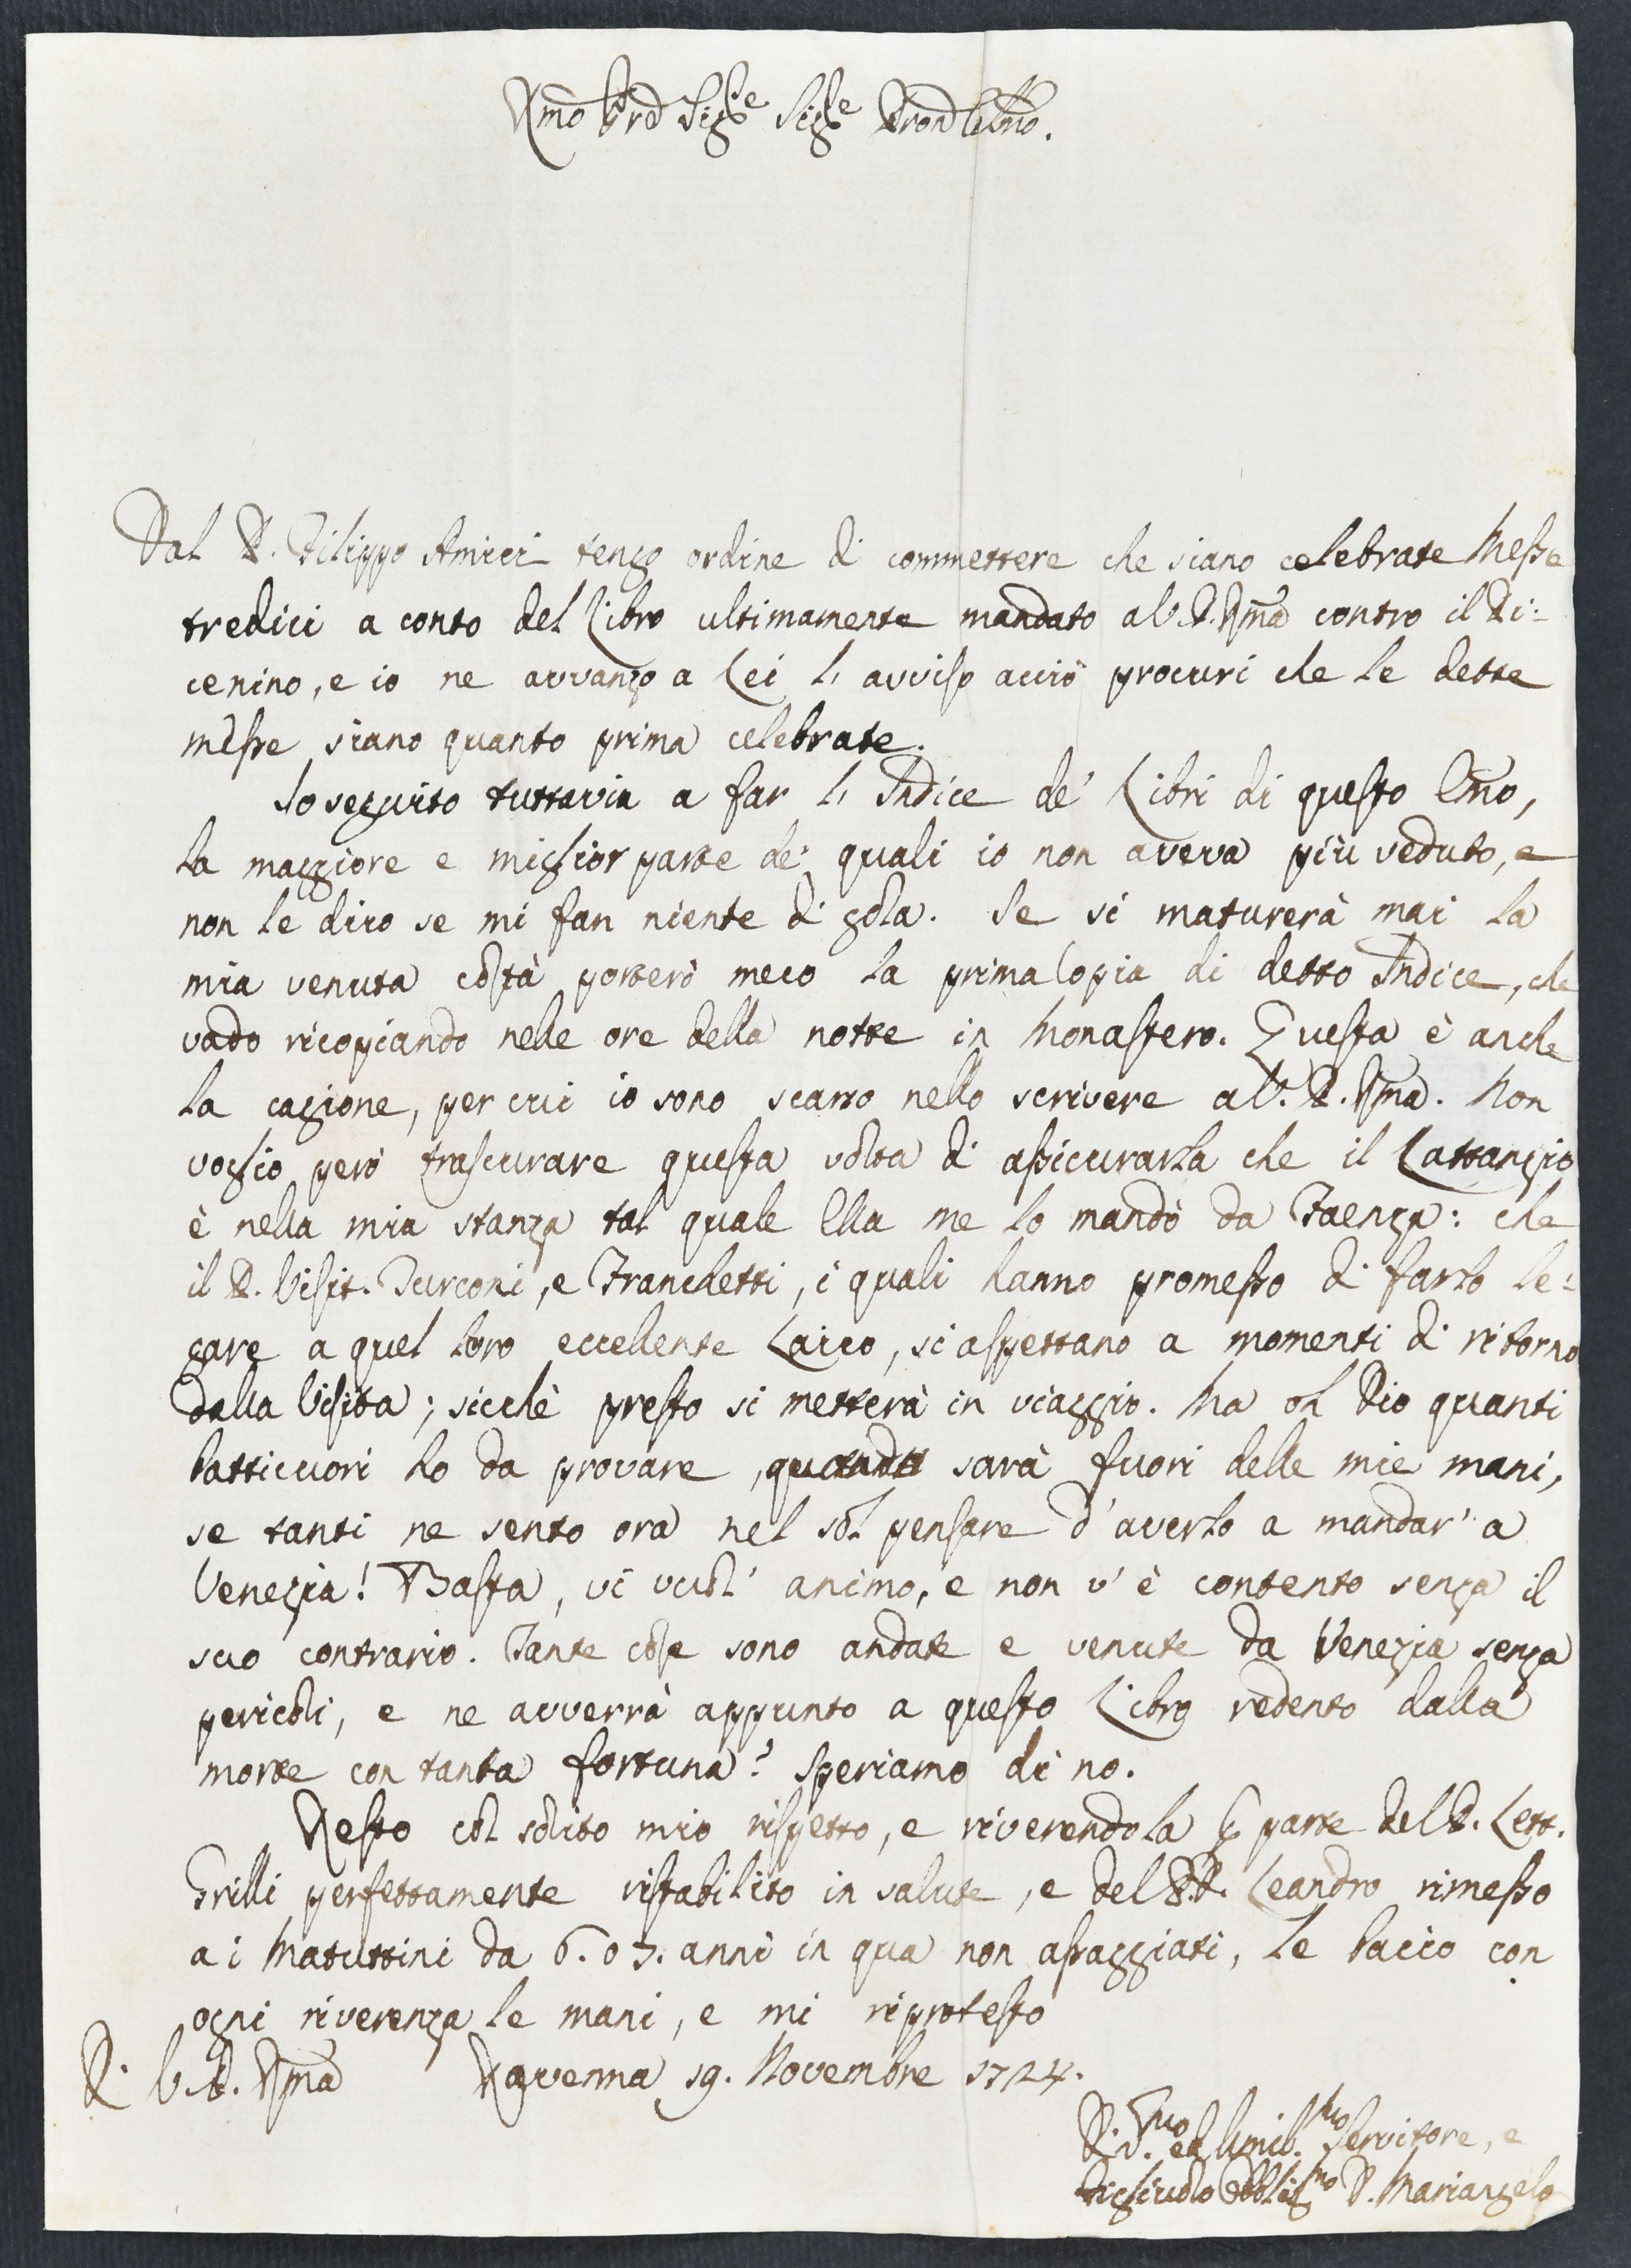 Rmo Prd Sigre Sigre Pron Colmo.
Dal P. Filippo Amici tengo ordine di commettere che siano celebrate Messe
tredici a conto del Libro ultimamente mandato a V. P. Rma contro il Pi:
cenino, e io ne avvanzo a Lei l'avviso acciò procuri che le dette
messe siano quanto prima celebrate.
Io seguito tuttavia a far l'Indice de' Libri di questo Emo,
la maggiore e miglior parte de' quali io non aveva più veduto, e
non le dico se mi fan niente di gola. Se si maturerà mai la
mia venuta costà porterò meco la prima Copia di detto Indice, che
vado ricopiando nelle ore della notte in Monastero. Questa è anche
la cagione, per cui io sono scarso nello scrivere a V. P. Rma. Non
voglio però trascurare questa volta di assicurarla che il Lattanzio
è nella mia stanza tal quale Ella me lo mandò da Faenza: che
il P. Visit. Turconi, e Franchetti, i quali hanno promesso di farlo le:
gare a quel loro eccellente Laico, si aspettano a momenti di ritorno
dalla Visita; sicchè presto si metterà in viaggio. Ma oh Dio quanti
batticuori ho da provare, quando sarà fuori delle mie mani,
se tanti ne sento ora nel sol pensare d'averlo a mandar' a
Venezia! Basta, vi vuol' animo, e non v'è contento senza il
suo contrario. Tante cose sono andate e venute da Venezia senza
pericoli, e ne avverrà appunto a questo Libro redento dalla
morte con tanta fortuna? Speriamo di no.
Resto col solito mio rispetto, e riverendola per parte del P. Lett.
Grilli perfettamente ristabilito in salute, e del P. D. Leandro rimesso
a i Matuttini da 6. o 7. anni in qua non assaggiati, le bacio con
ogni riverenza le mani, e mi riprotesto
Di V. P. Rma Ravenna 19. Novembre 1724.
Di V. ed Umil.mo Servitore, e
Figliuolo Obblig.mo D. Mariangelo